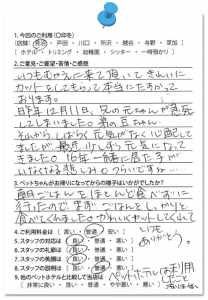 1. 今回のご利用(〇印を)
[店舗: 発寒 ・ 戸田 ・ 川口 ・ 所沢 ・ 越谷 ・ 与野 ・ 草加]
[ホテル ・ トリミング ・ 幼稚園 ・ シッター ・ 一時預かり]
2. ご意見・ご要望・苦情・ご感想
いつもむかえに来て頂いてきれいに
カットをしてもらって本当にたすかって
おります。
昨年12月11日、兄の元ちゃんが急死
してしまいました。弟の豆ちゃん
それからしばらく元気がなく心配して
ましたが最近少しずつ元気になって
きました。16年一緒に居た子が
いなくなる悲しみのつらいですね…
3. ペットちゃんがお帰りになってからの様子はいかがでしたか?
朝ごはんをほとんど食べずに
行ったのでまずごはんをしっかりと
食べてくれました。かわいくセットしてくれて
いつも
ありがとう。
4. ご利用料金は (良い ・ 普通 ・ 悪い)
5. スタッフの対応は (良い ・ 普通 ・ 悪い)
6. スタッフの礼儀は (良い ・ 普通 ・ 悪い)
7. スタッフの笑顔は (良い ・ 普通 ・ 悪い)
8. スタッフの説明は (良い ・ 普通 ・ 悪い)
9. 他のペットホテルと比較して当店は
(非常に良い ・ 良い ・ 普通 ・ やや悪い ・ 悪い)
ペットホテルは利用